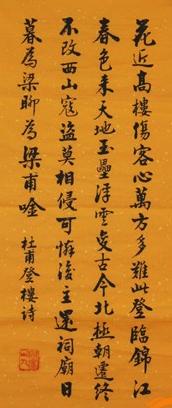 花近高樓傷客心萬方多難此登臨錦江
春色来天地玉壘浮雲变古今北極朝廷終
不改西山寇盗莫相侵可憐後主還祠廟日
暮為梁聊為梁甫唫
杜甫登樓诗